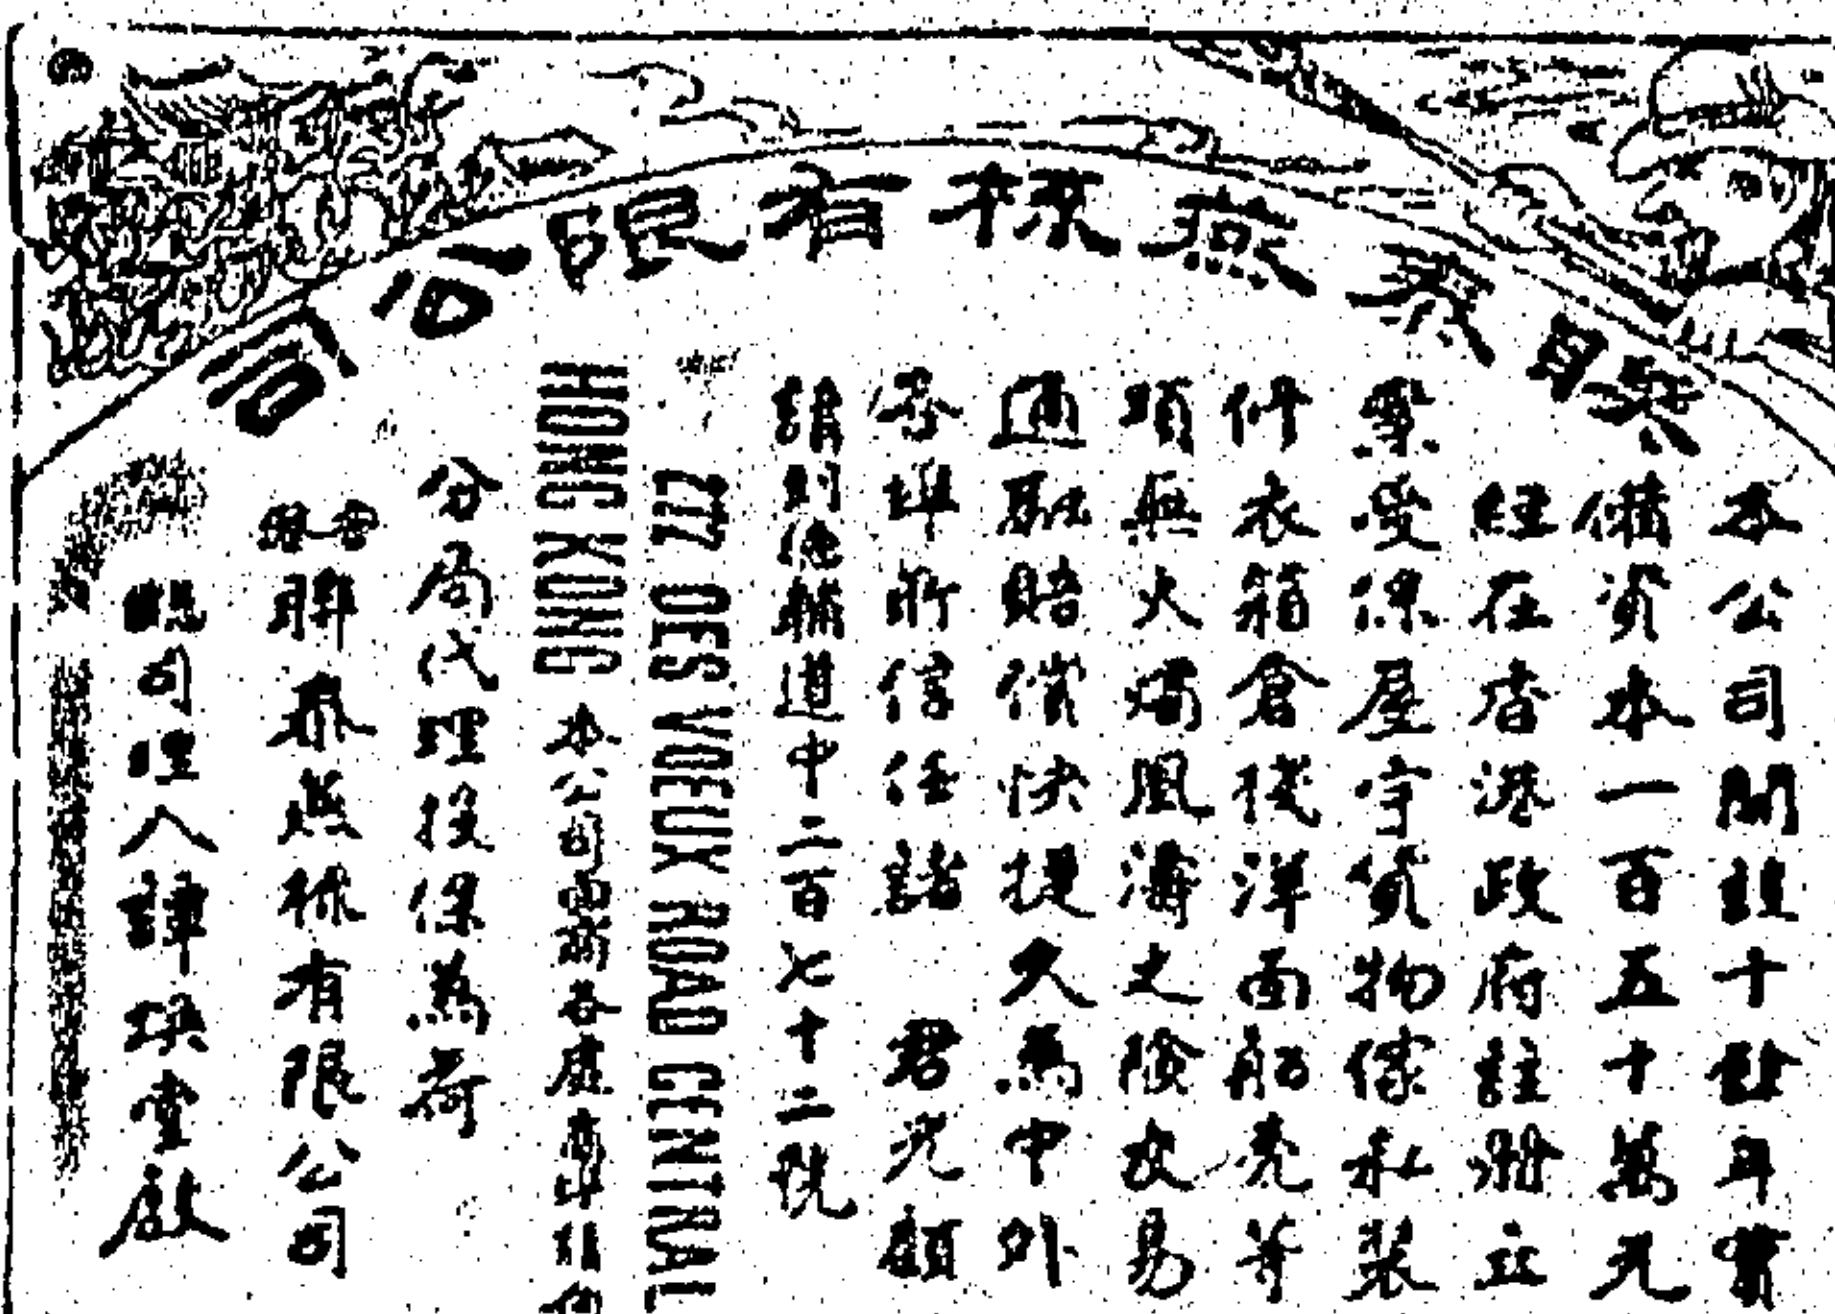 聯泰燕梳有限公司
本公司開設十餘年實
備資本一百五十萬元
經在香港政府註冊立
案受保屋宇貨物傢私裝
修衣箱倉棧洋面船壳等
項無火燭風濤之險交易
通融賠償快捷久為中外
各埠所信任諸 君光顧
請到德輔道中二百七十二號
272 DES VOEUX ROAD CENTRAL
HONG KONG 本公司 各處
分局代理投保為荷
聯泰燕梳有限公司
總司理人譚煥堂啟